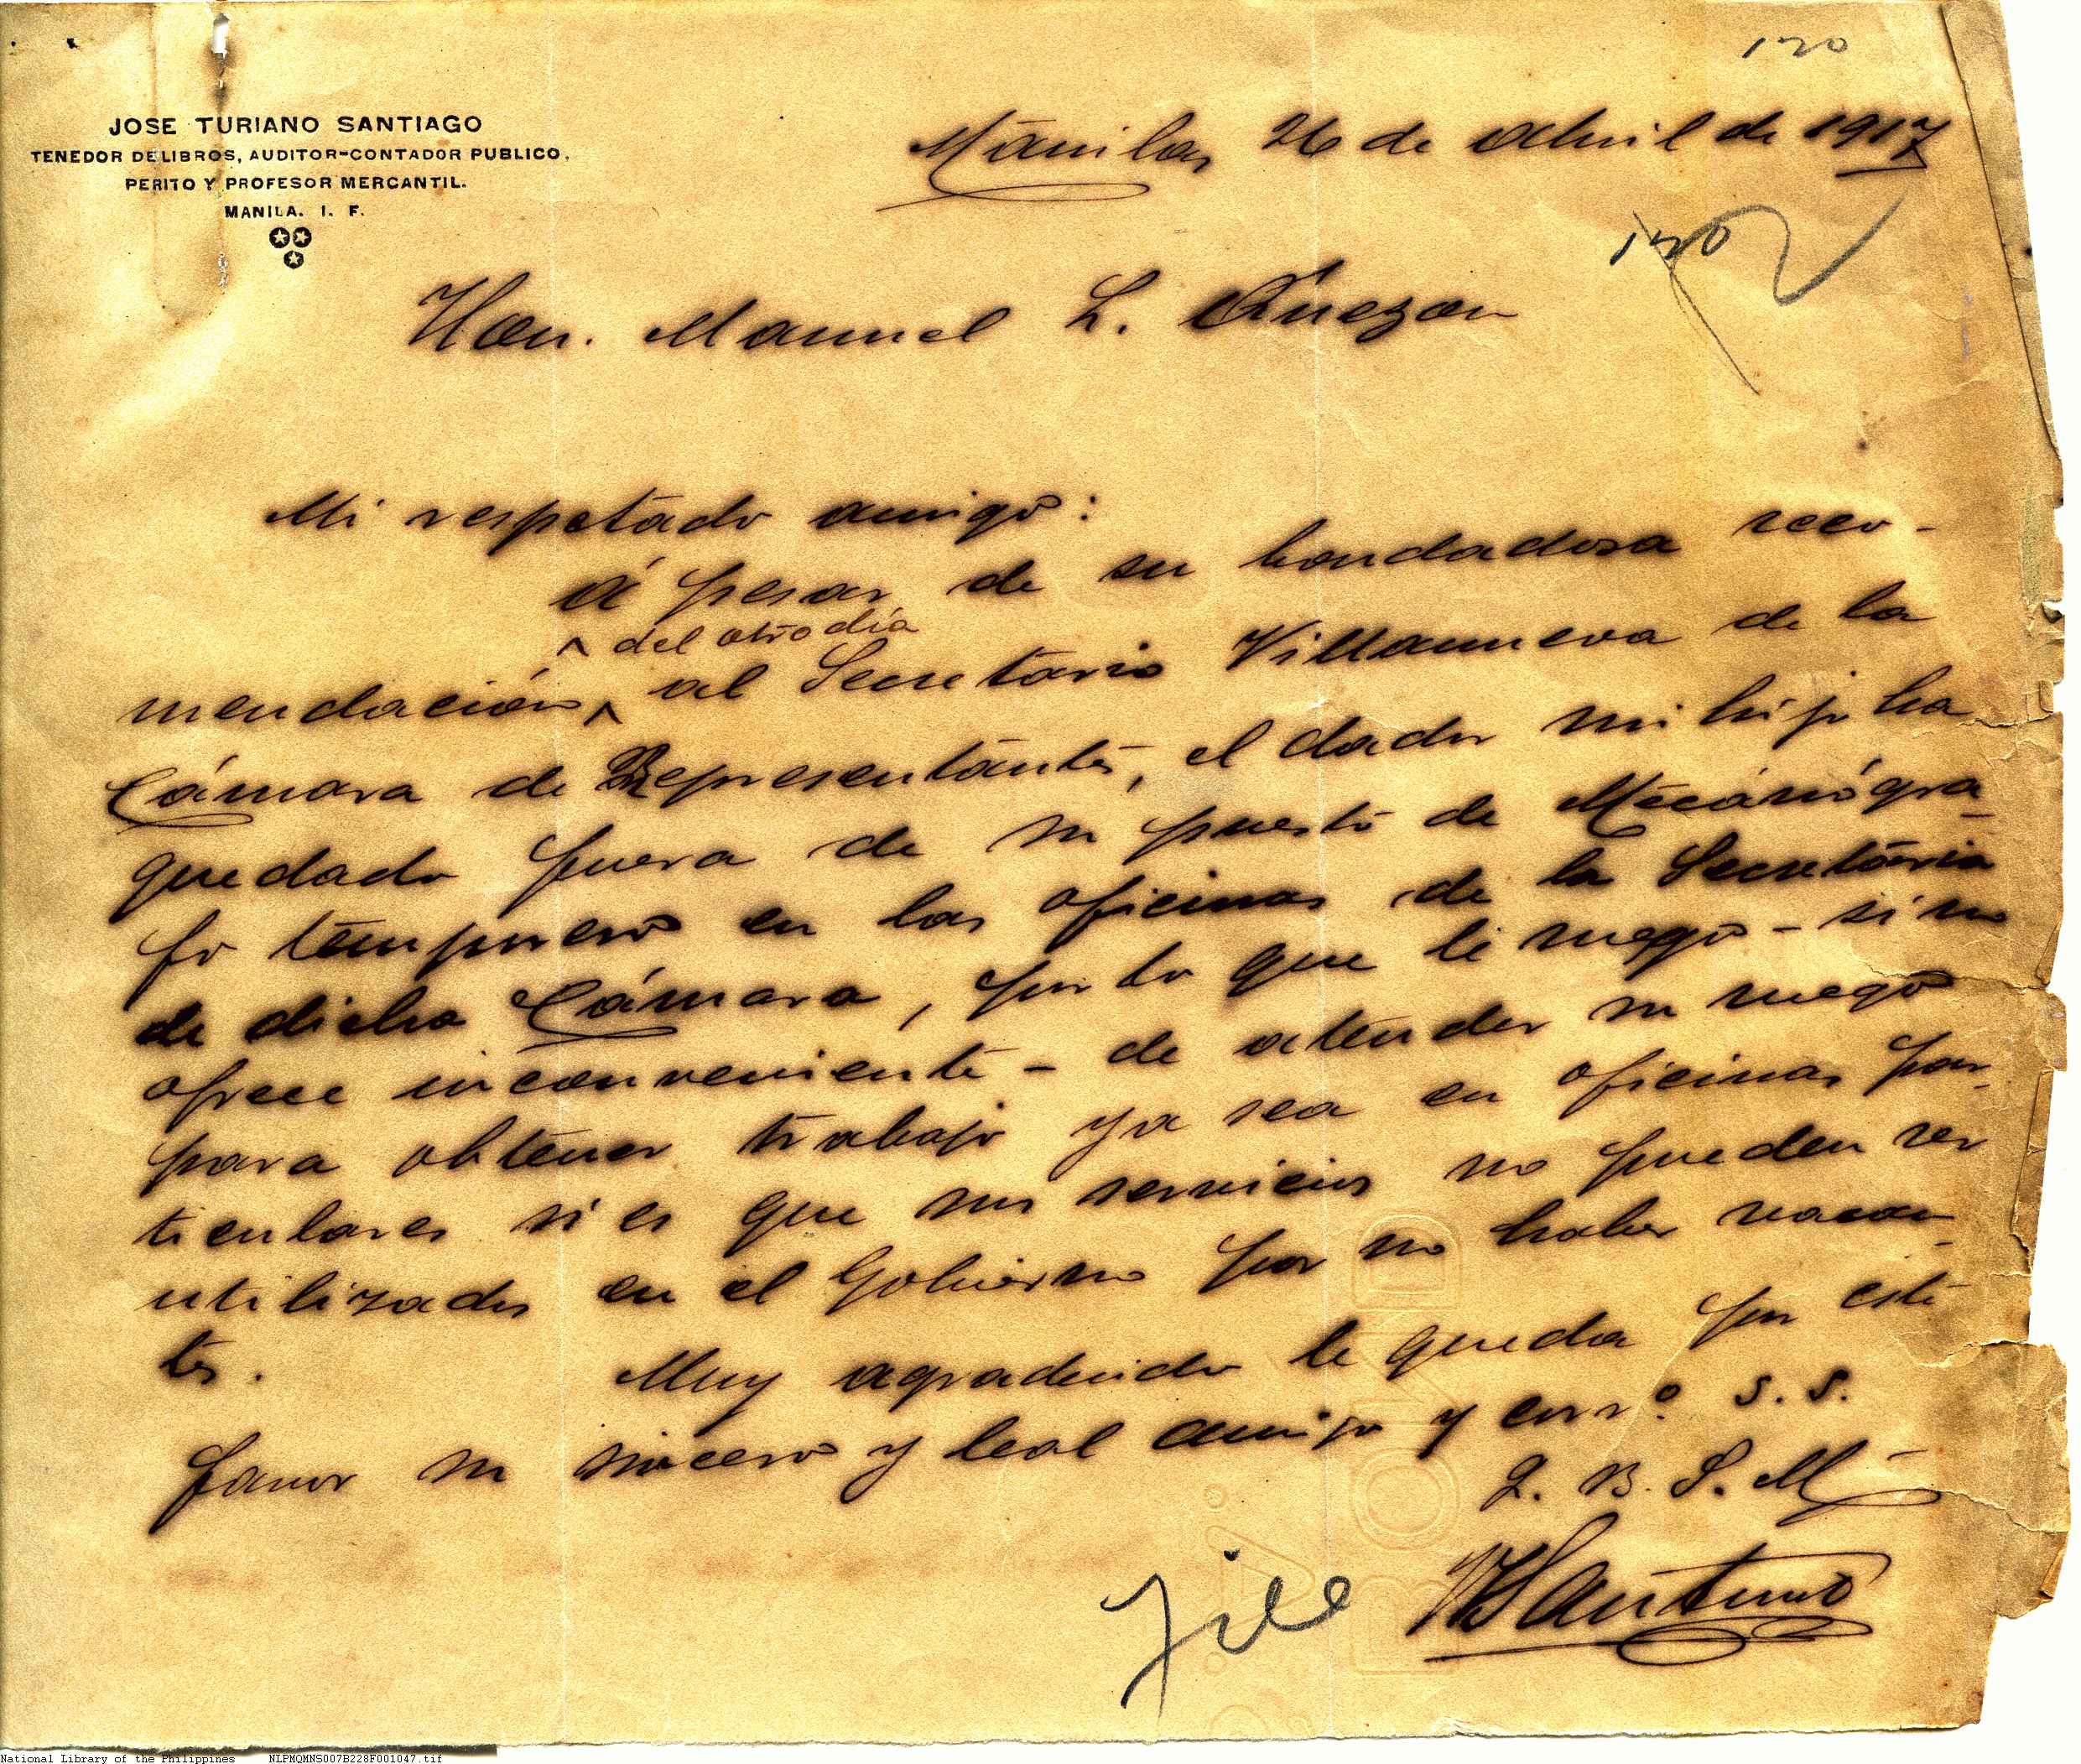 120
JOSE TURIANO SANTIAGO
TENEDOR DE LIBROS, AUDITOR-CONTADOR PUBLICO.
PERITO Y PROFESOR MERCANTIL.
MANILA. I. F.
Manila, 26 de abril de 1917
120
Hon. Manuel L. Quezon
Mi respetado amigo:
á pesar de su bondadosa reco-
del otro dia
mendación, al Secretario Villanueva de la
Cámara de Representantes, el dador mi hijo ha
quedado fuera de su puesto de Mecanógra-
fo temporero en las oficinas de la Secretaria
de dicha Cámara, por lo que le ruego - si no
ofrece inconveniente - de atender su ruego
para obtener trabajo ya sea en oficinas par-
ticulares si es que sus servicios no pueden ser
utilizados en el Gobierno por no haber vacan-
tes.
Muy agradecido le queda por este
favor su sincero y leal amigo y corro. s. s.
Q. B. S. M.
File
BOND
National Library of the Philippines NLPMQMNS007B228F001047.tif